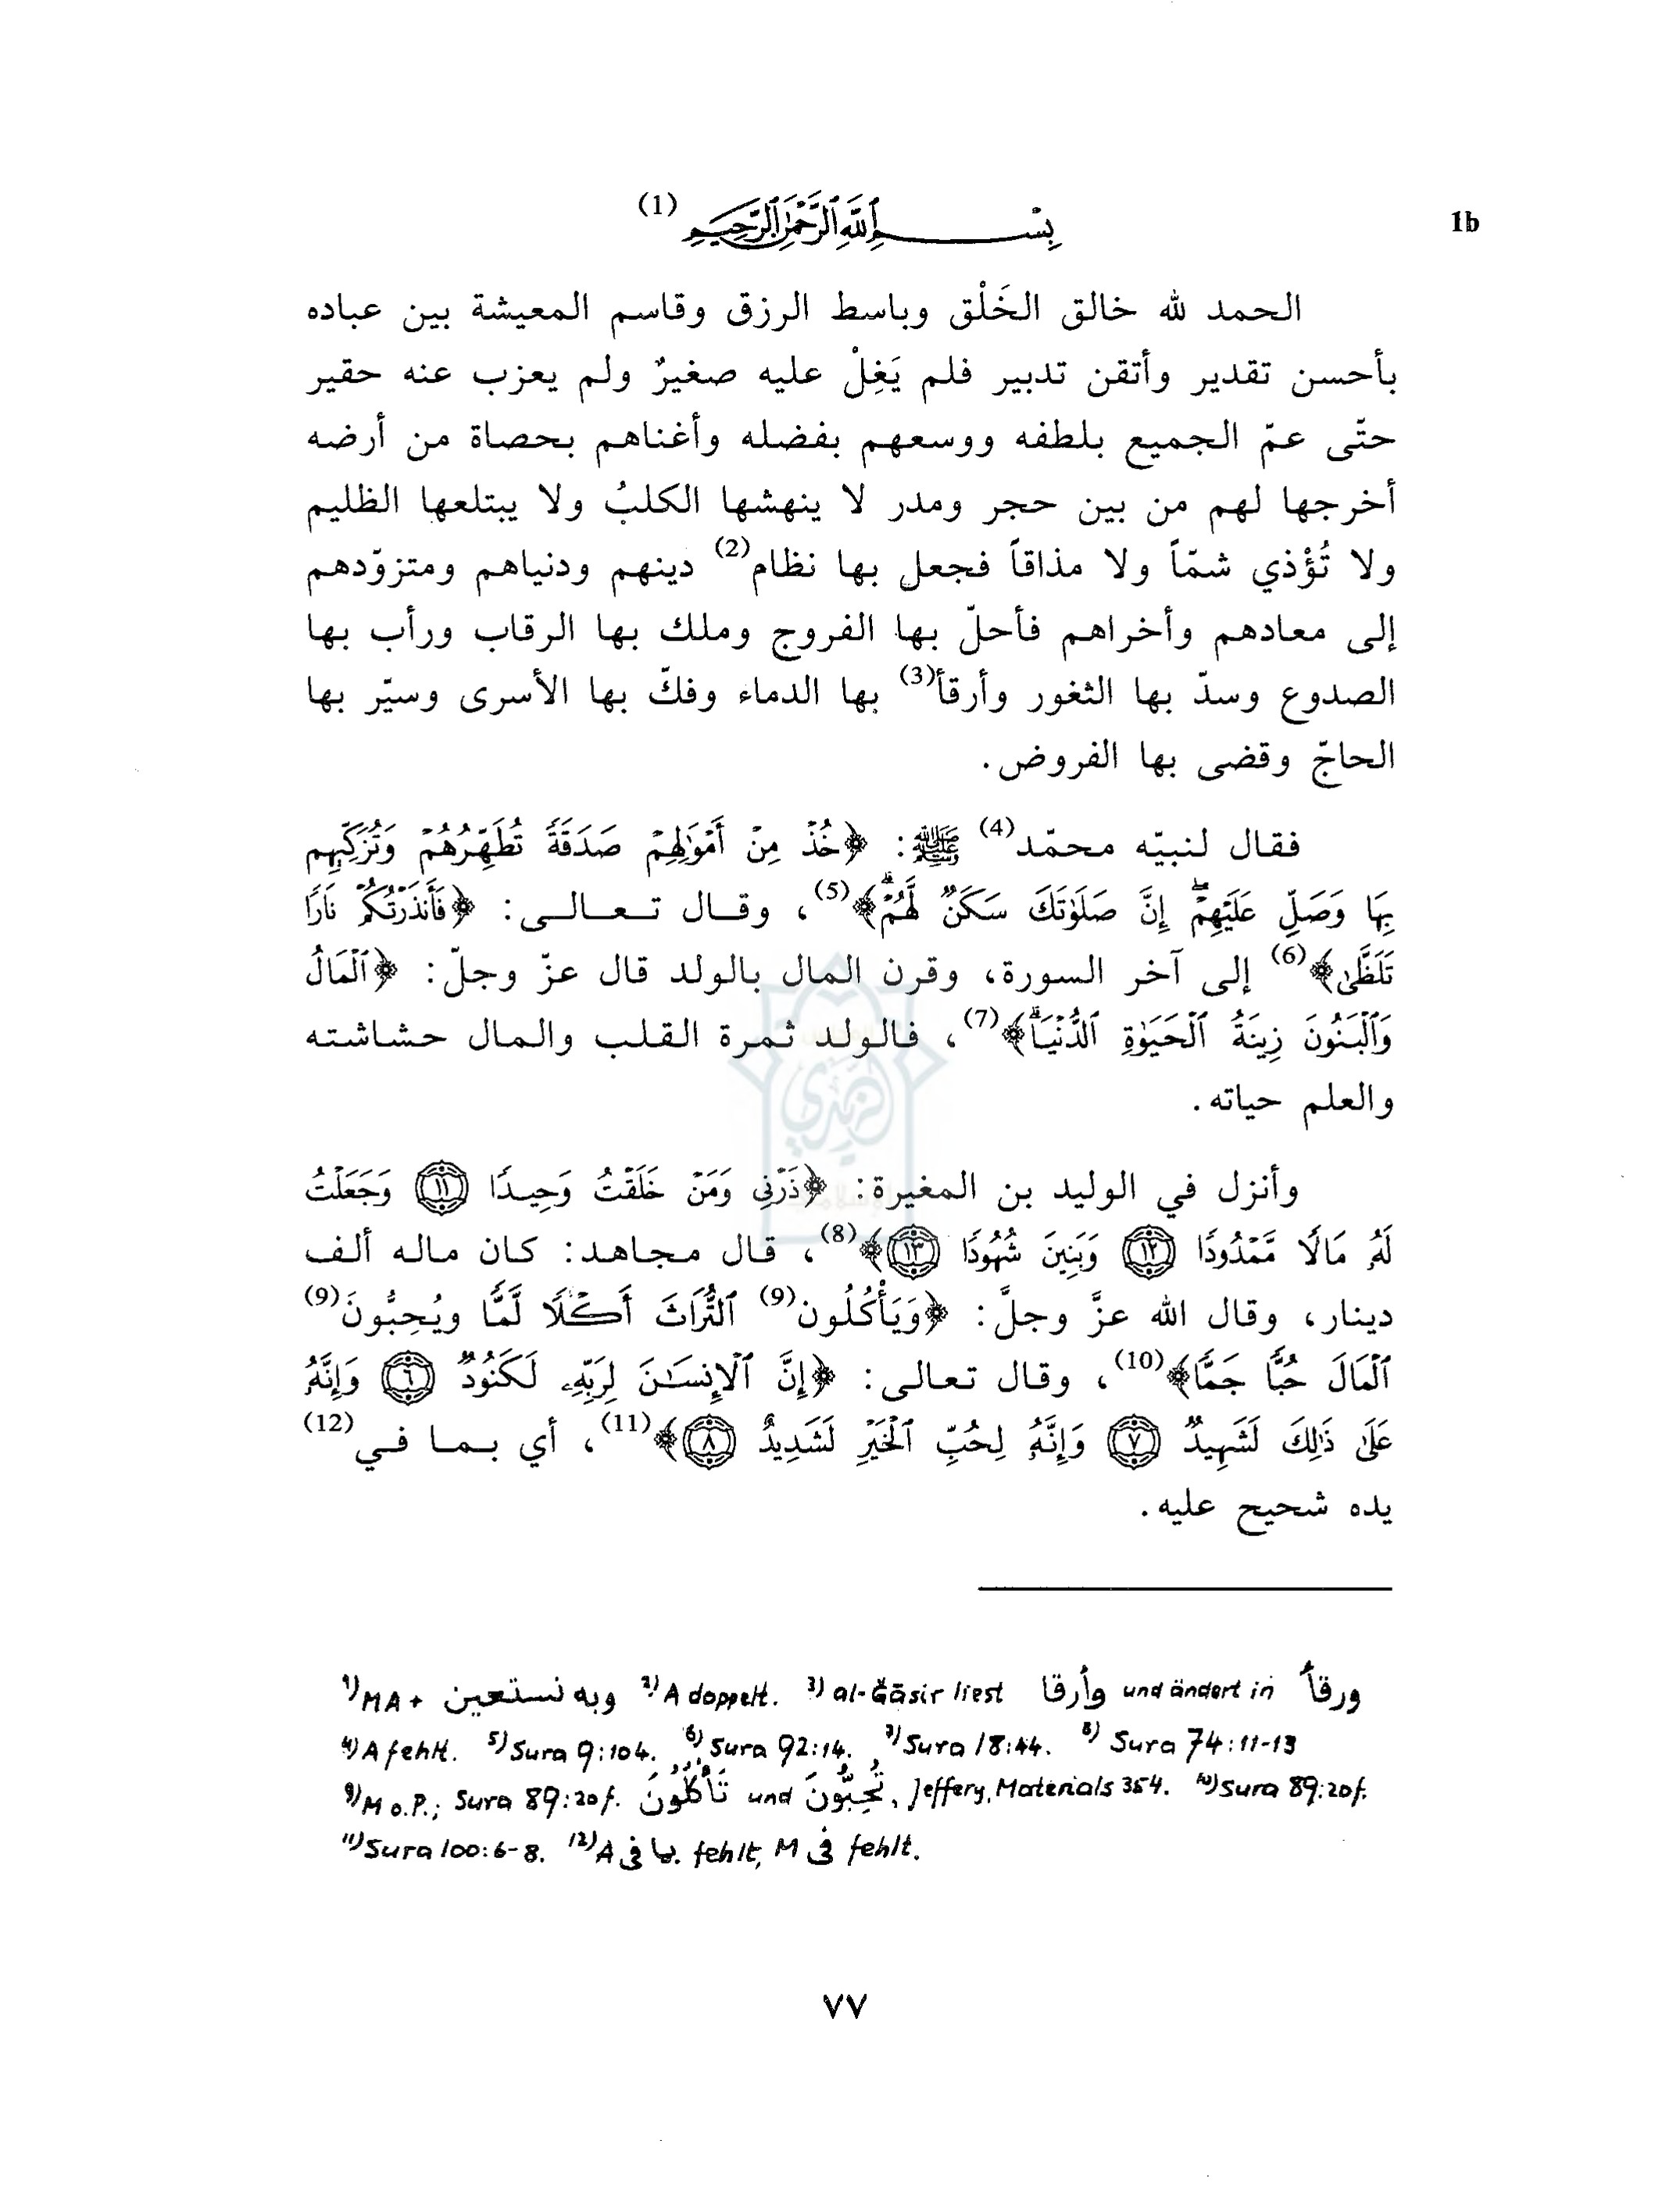 1b
بِسْمِ ٱللَّهِ ٱلرَّحْمَٰنِ ٱلرَّحِيمِ (1)
الحمد لله خالق الخَلْق وباسط الرزق وقاسم المعيشة بين عباده
بأحسن تقدير وأتقن تدبير فلم يَغِلْ عليه صغيرٌ ولم يعزب عنه حقير
حتّى عمّ الجميع بلطفه ووسعهم بفضله وأغناهم بحصاة من أرضه
أخرجها لهم من بين حجر ومدر لا ينهشها الكلبُ ولا يبتلعها الظليم
ولا تُؤْذي شمّاً ولا مذاقاً فجعل بها نظام(2) دينهم ودنياهم ومتزوّدهم
إلى معادهم وأخراهم فأحلّ بها الفروج وملك بها الرقاب ورأب بها
الصدوع وسدّ بها الثغور وأرقأ(3) بها الدماء وفكّ بها الأسرى وسيّر بها
الحاجّ وقضى بها الفروض.
فقال لنبيّه محمّد(4) ﷺ: ﴿خُذْ مِنْ أَمْوَٰلِهِمْ صَدَقَةً تُطَهِّرُهُمْ وَتُزَكِّيهِم
بِهَا وَصَلِّ عَلَيْهِمْ ۖ إِنَّ صَلَوٰتَكَ سَكَنٌ لَّهُمْ ۗ﴾(5)، وقال تعالى: ﴿فَأَنذَرْتُكُمْ نَارًا
تَلَظَّىٰ﴾(6) إلى آخر السورة، وقرن المال بالولد قال عزّ وجلّ: ﴿ٱلْمَالُ
وَٱلْبَنُونَ زِينَةُ ٱلْحَيَوٰةِ ٱلدُّنْيَا ۖ﴾(7)، فالولد ثمرة القلب والمال حشاشته
والعلم حياته.
وأنزل في الوليد بن المغيرة: ﴿ذَرْنِي وَمَنْ خَلَقْتُ وَحِيدًا ١١ وَجَعَلْتُ
لَهُۥ مَالًا مَّمْدُودًا ١٢ وَبَنِينَ شُهُودًا ١٣﴾(8)، قال مجاهد: كان ماله ألف
دينار، وقال الله عزَّ وجلَّ: ﴿وَيَأْكُلُون(9) ٱلتُّرَاثَ أَكْلًا لَّمًّا ويُحِبُّونَ(9)
ٱلْمَالَ حُبًّا جَمًّا﴾(10)، وقال تعالى: ﴿إِنَّ ٱلْإِنسَـٰنَ لِرَبِّهِۦ لَكَنُودٌ ٦ وَإِنَّهُۥ
عَلَىٰ ذَٰلِكَ لَشَهِيدٌ ٧ وَإِنَّهُۥ لِحُبِّ ٱلْخَيْرِ لَشَدِيدٌ ٨﴾(11)، أي بما في(12)
يده شحيح عليه.
1) MA + وبه نستعين 2) A doppelt. 3) al-Ǧāsir liest وأرقا und ändert in ورقأ
4) A fehlt. 5) Sura 9:104. 6) Sura 92:14. 7) Sura 18:44. 8) Sura 74:11-13
9) M o.P.; Sura 89:20f. تَأْكُلُونَ und تُحِبُّونَ, Jeffery, Materials 354. 10) Sura 89:20f.
11) Sura 100:6-8. 12) A بما فى fehlt, M فى fehlt.
٧٧